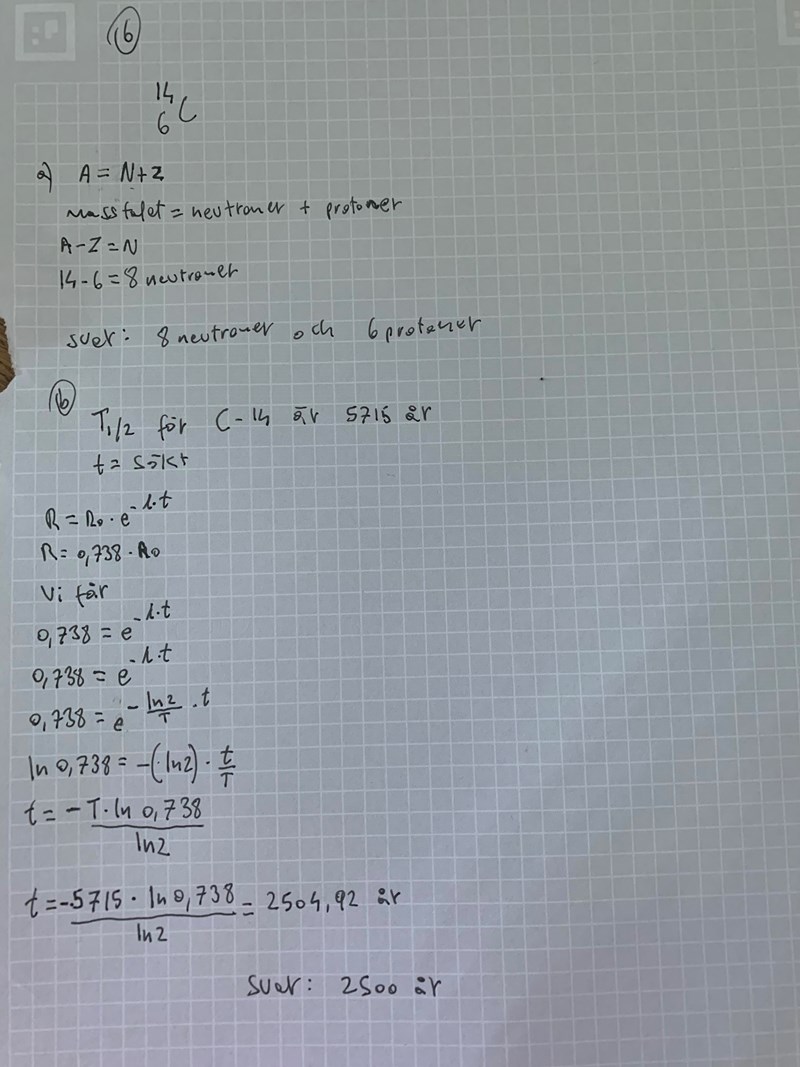 16
14
6 C
a) A = N+Z
masstalet = neutroner + protoner
A-Z=N
14-6=8 neutroner
svar: 8 neutroner och 6 protoner
b
T1/2 för C-14 är 5715 år
t= sökt
R = R0 · e^-λ·t
R = 0,738 · R0
Vi får
0,738 = e^-λ·t
0,738 = e^-λ·t
0,738 = e^-ln2/T · t
ln 0,738 = -(ln2) · t/T
t = -T·ln 0,738/ln2
t = -5715 · ln 0,738/ln2 = 2504,92 år
svar: 2500 år